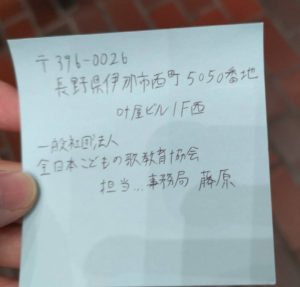 〒396-0026
長野県伊那市西町5050番地
叶屋ビル1F西
一般社団法人
全日本こどもの歌教育協会
担当…事務局 藤原